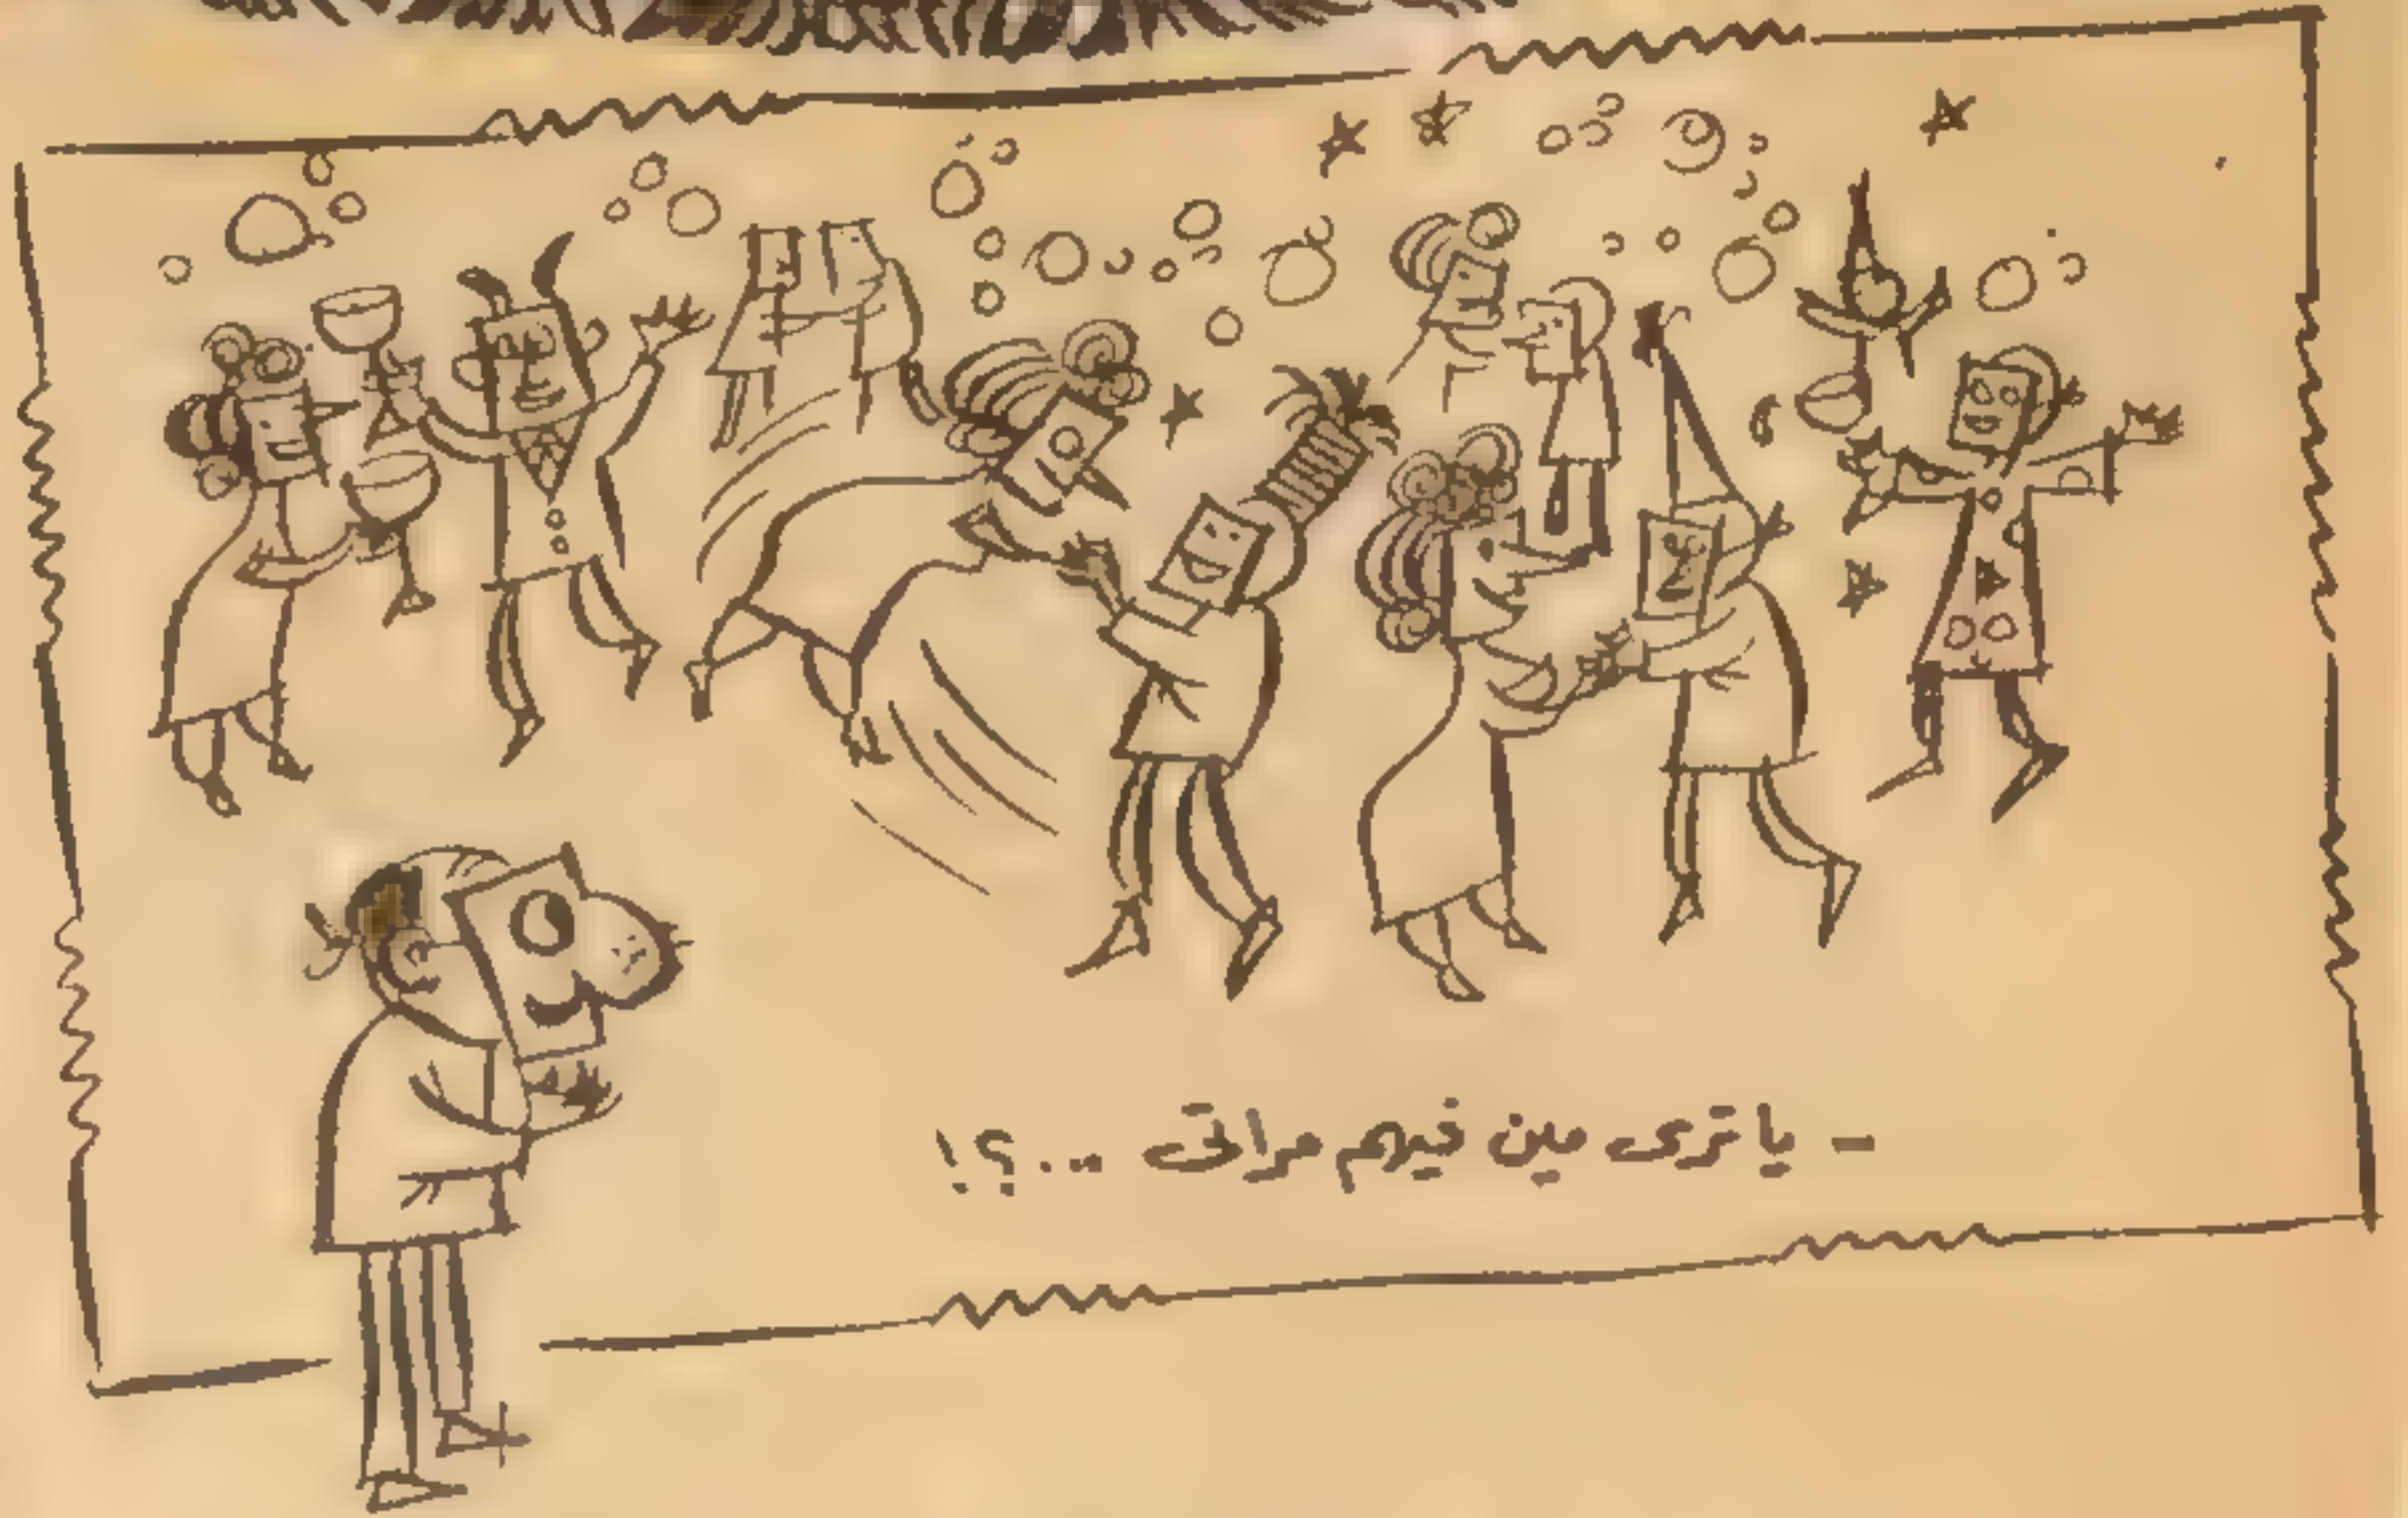 - ياترى مين فيهم مراتى ...؟!